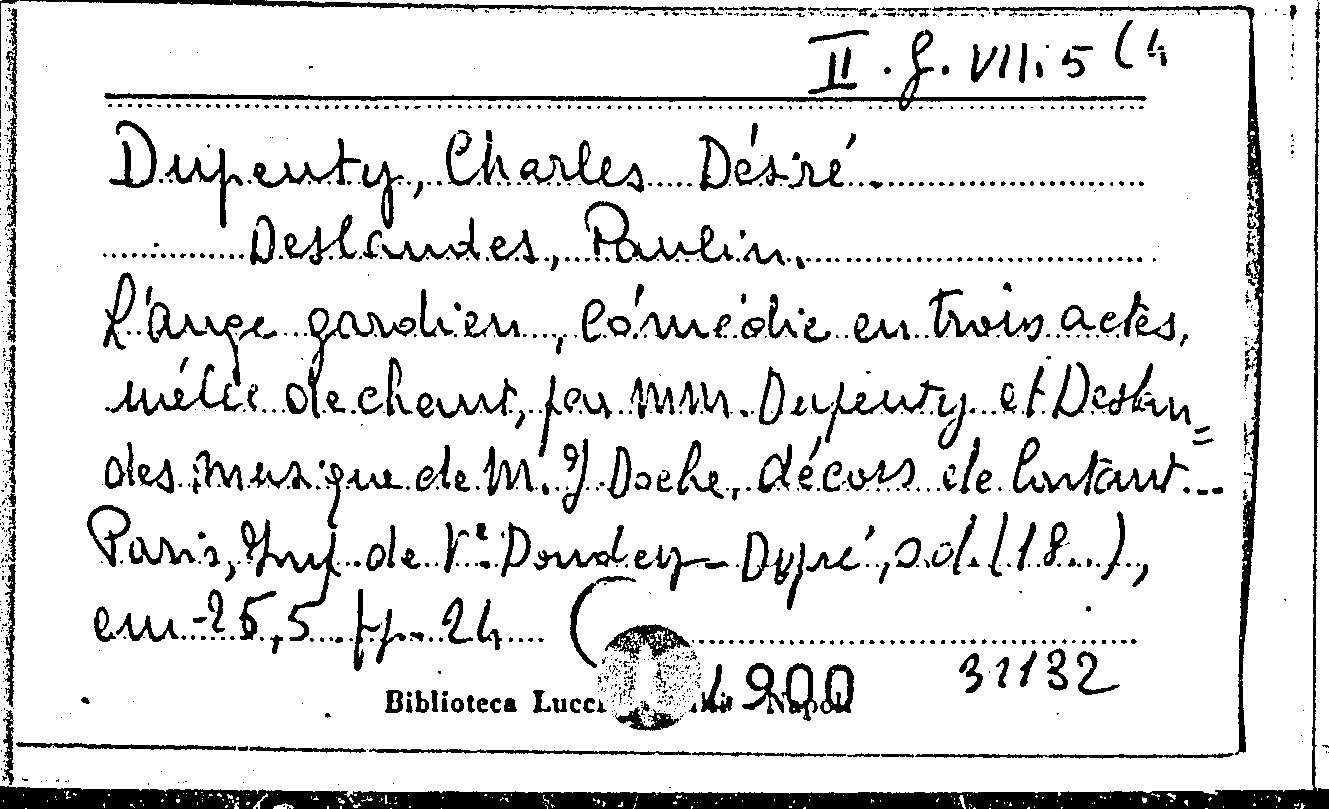 II. g. VII. 5 (4
Dupeuty, Charles Désiré.
Deslandes, Paulin.
L'ange gardien, Comédie en trois actes,
mêlée de chant, par MM. Dupeuty et Deslan=
des, musique de M. J. Doche, décors de Contant...
Paris, Imp. de Vᵉ Dondey-Dupré, s.d. (18..),
cm. 25,5. pp. 24 (
4900
31132
Biblioteca Lucc Napoli